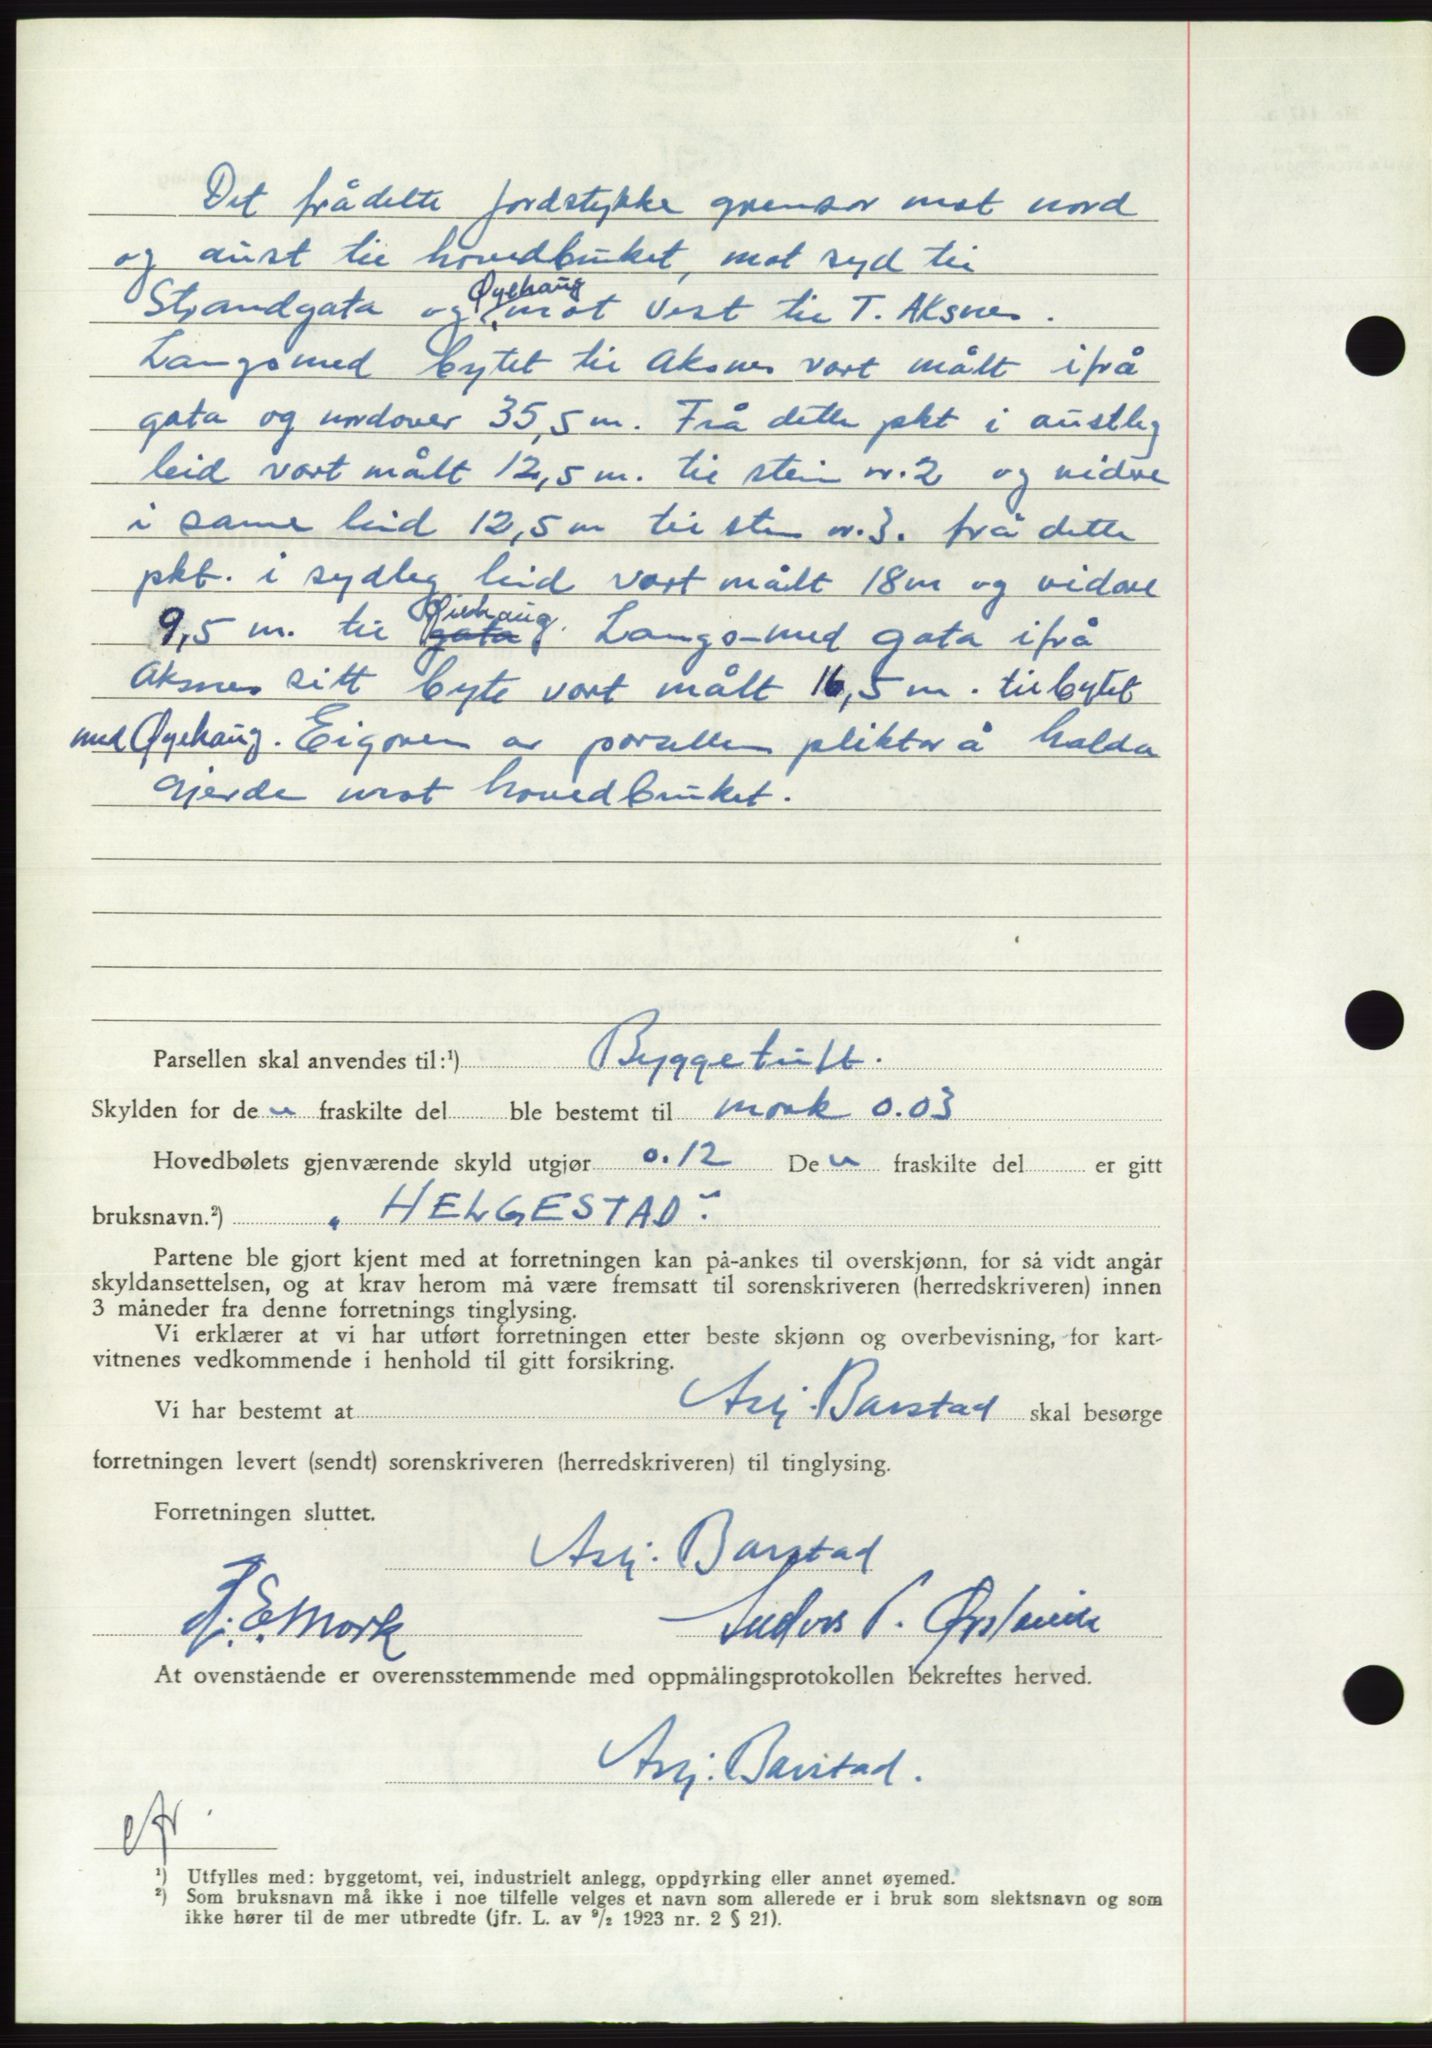 Det frådelte jordstykke grenser mot nord
og aust til hovedbruket, mot syd til
Strandgata og Øyehaug mot vest til T. Aksnes.
Langsmed bytet til Aksnes vart målt ifrå
gata og nordover 35,5 m. Frå dette pkt i austleg
leid vart målt 12,5 m. til stein nr. 2 og vidare
i same leid 12,5 m til sten nr. 3. frå dette
pkt. i sydleg leid vart målt 18 m og vidare
9,5 m. til gata Øiehaug. Langs-med gata ifrå
Aksnes sitt byte vart målt 16,5 m. til bytet
med Øyehaug. Eigaren av parsellen plikter å halda
gjerde mot hovedbruket.
Parsellen skal anvendes til:¹) Byggetuft.
Skylden for den fraskilte del ble bestemt til mark 0.03
Hovedbølets gjenværende skyld utgjør 0.12 Den fraskilte del er gitt
bruksnavn.²) "HELGESTAD".
Partene ble gjort kjent med at forretningen kan på-ankes til overskjønn, for så vidt angår
skyldansettelsen, og at krav herom må være fremsatt til sorenskriveren (herredskriveren) innen
3 måneder fra denne forretnings tinglysing.
Vi erklærer at vi har utført forretningen etter beste skjønn og overbevisning, for kart-
vitnenes vedkommende i henhold til gitt forsikring.
Vi har bestemt at Asbj. Barstad skal besørge
forretningen levert (sendt) sorenskriveren (herredskriveren) til tinglysing.
Forretningen sluttet.
Asbj. Barstad
E. Mork Anders P. Ørstavik
At ovenstående er overensstemmende med oppmålingsprotokollen bekreftes herved.
Asbj. Barstad.
¹) Utfylles med: byggetomt, vei, industrielt anlegg, oppdyrking eller annet øyemed.
²) Som bruksnavn må ikke i noe tilfelle velges et navn som allerede er i bruk som slektsnavn og som
ikke hører til de mer utbredte (jfr. L. av 9/2 1923 nr. 2 § 21).